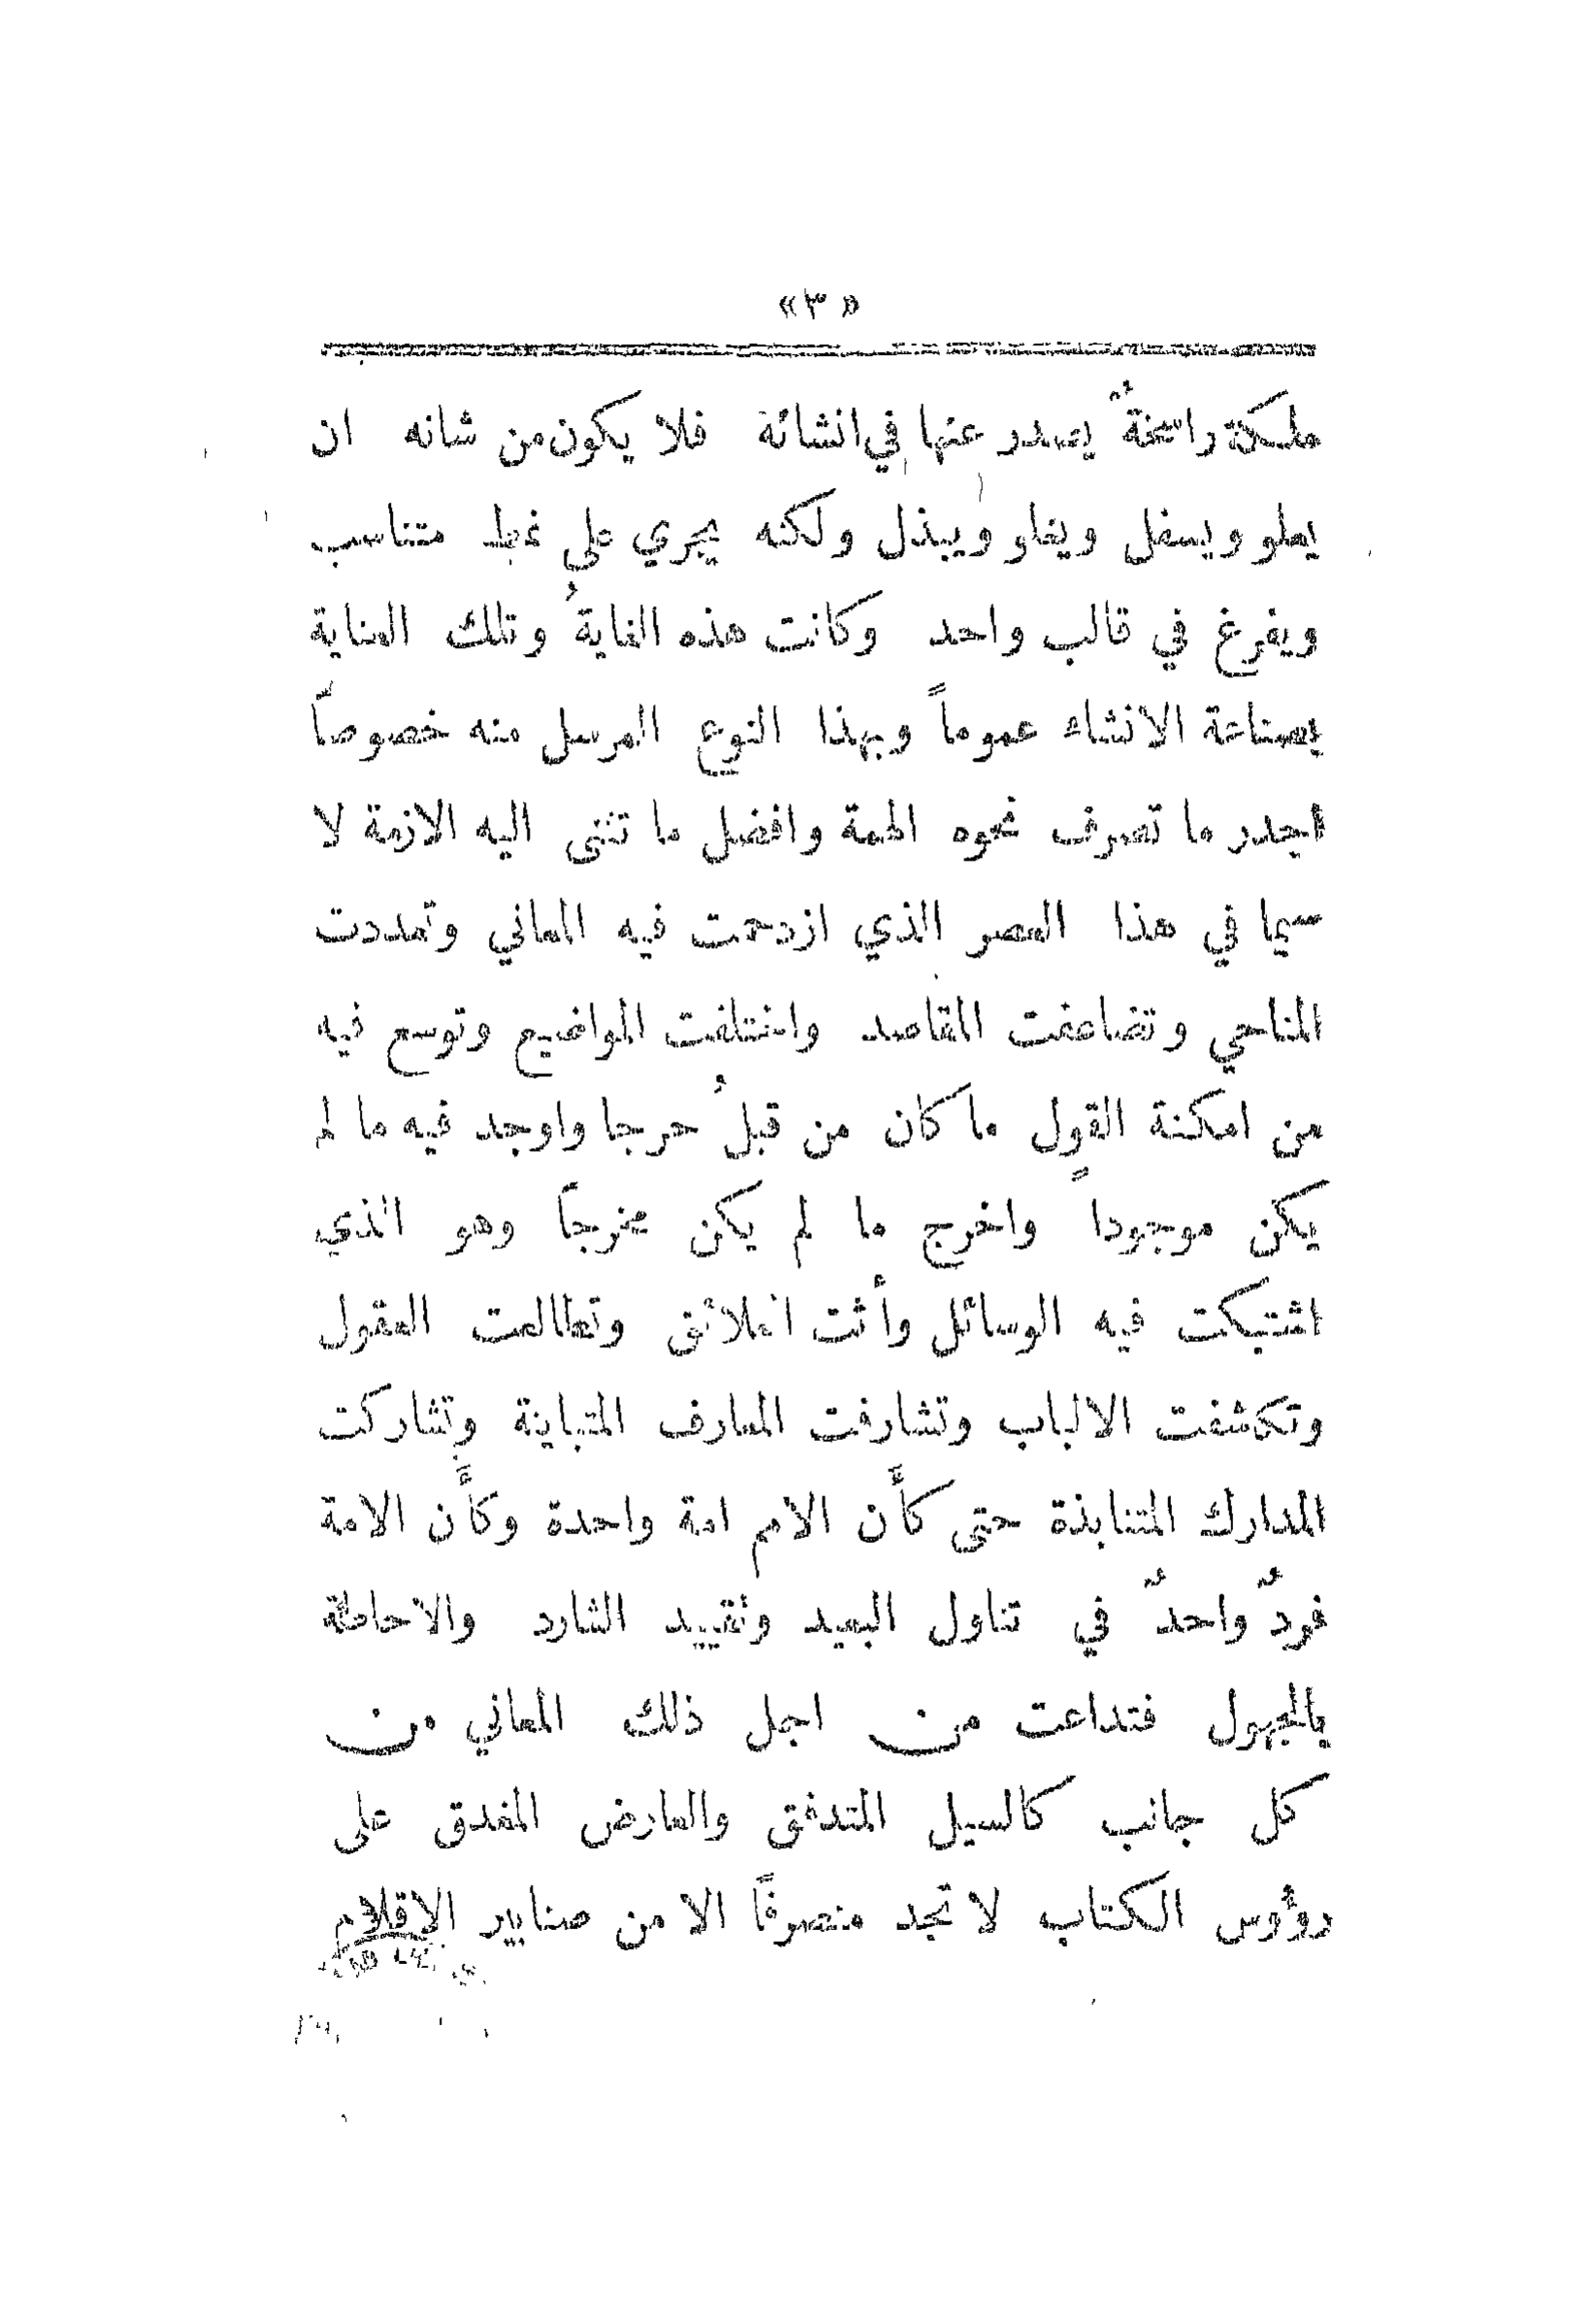 « ٣ »
ملكة راسخةٌ يصدر عنها في انشائه فلا يكون من شانه ان
يعلو ويسفل ويغلو ويبذل ولكنه يجري على نمط متناسب
ويفرغ في قالب واحد وكانت هذه الغايةُ وتلك العناية
بصناعة الانشاء عموماً وبهذا النوع المرسل منه خصوصاً
اجدر ما تصرف نحوه الهمة وافضل ما تثنى اليه الازمة لا
سيما في هذا العصر الذي ازدحمت فيه المعاني وتعددت
المناحي وتضاعفت المقاصد واختلفت المواضيع وتوسع فيه
من امكنة القول ما كان من قبلُ حرجا واوجد فيه ما لم
يكن موجوداً واخرج ما لم يكن مخرجاً وهو الذي
اشتبكت فيه الوسائل وأثت العلائق وتطالعت العقول
وتكاشفت الالباب وتشارفت المعارف المتباينة وتشاركت
المدارك المتنابذة حتى كأَن الامم امة واحدة وكأَن الامة
فردٌ واحدٌ في تناول البعيد وتقييد الشارد والاحاطة
بالمجهول فتداعت من اجل ذلك المعاني من
كل جانب كالسيل المتدفق والعارض المغدق على
رؤوس الكتاب لا تجد منصرفاً الا من صنابير الاقلام